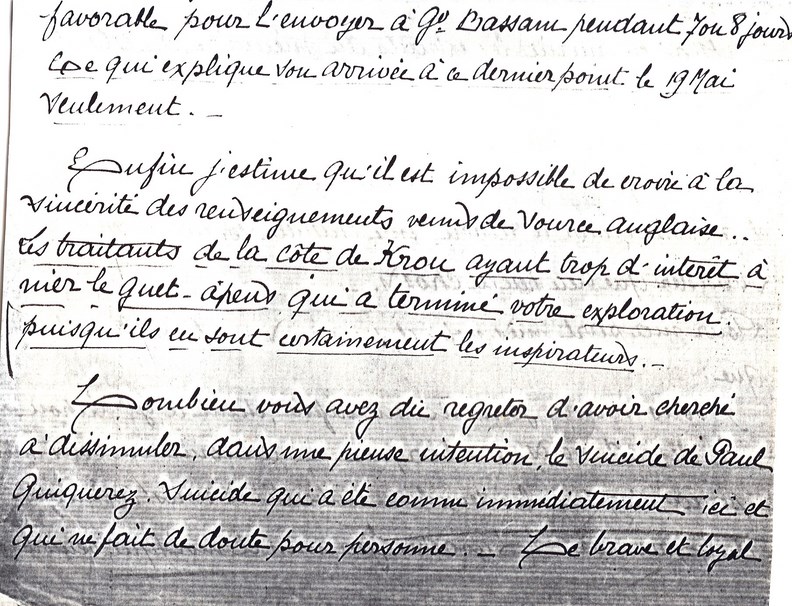 favorable pour l'envoyer à Gd Bassam pendant 7 ou 8 jours
Ce qui explique son arrivée à ce dernier point le 19 Mai
seulement. _
Enfin j'estime qu'il est impossible de croire à la
sincérité des renseignements venus de source anglaise..
Les traitants de la côte de Krou ayant trop d'intérêt à
nier le guet-apens qui a terminé votre exploration
puisqu'ils en sont certainement les inspirateurs. _
Combien vous avez dû regretter d'avoir cherché
à dissimuler, dans une pieuse intention, le suicide de Paul
Quiquerez. Suicide qui a été connu immédiatement ici et
qui ne fait de doute pour personne. _ Ce brave et loyal